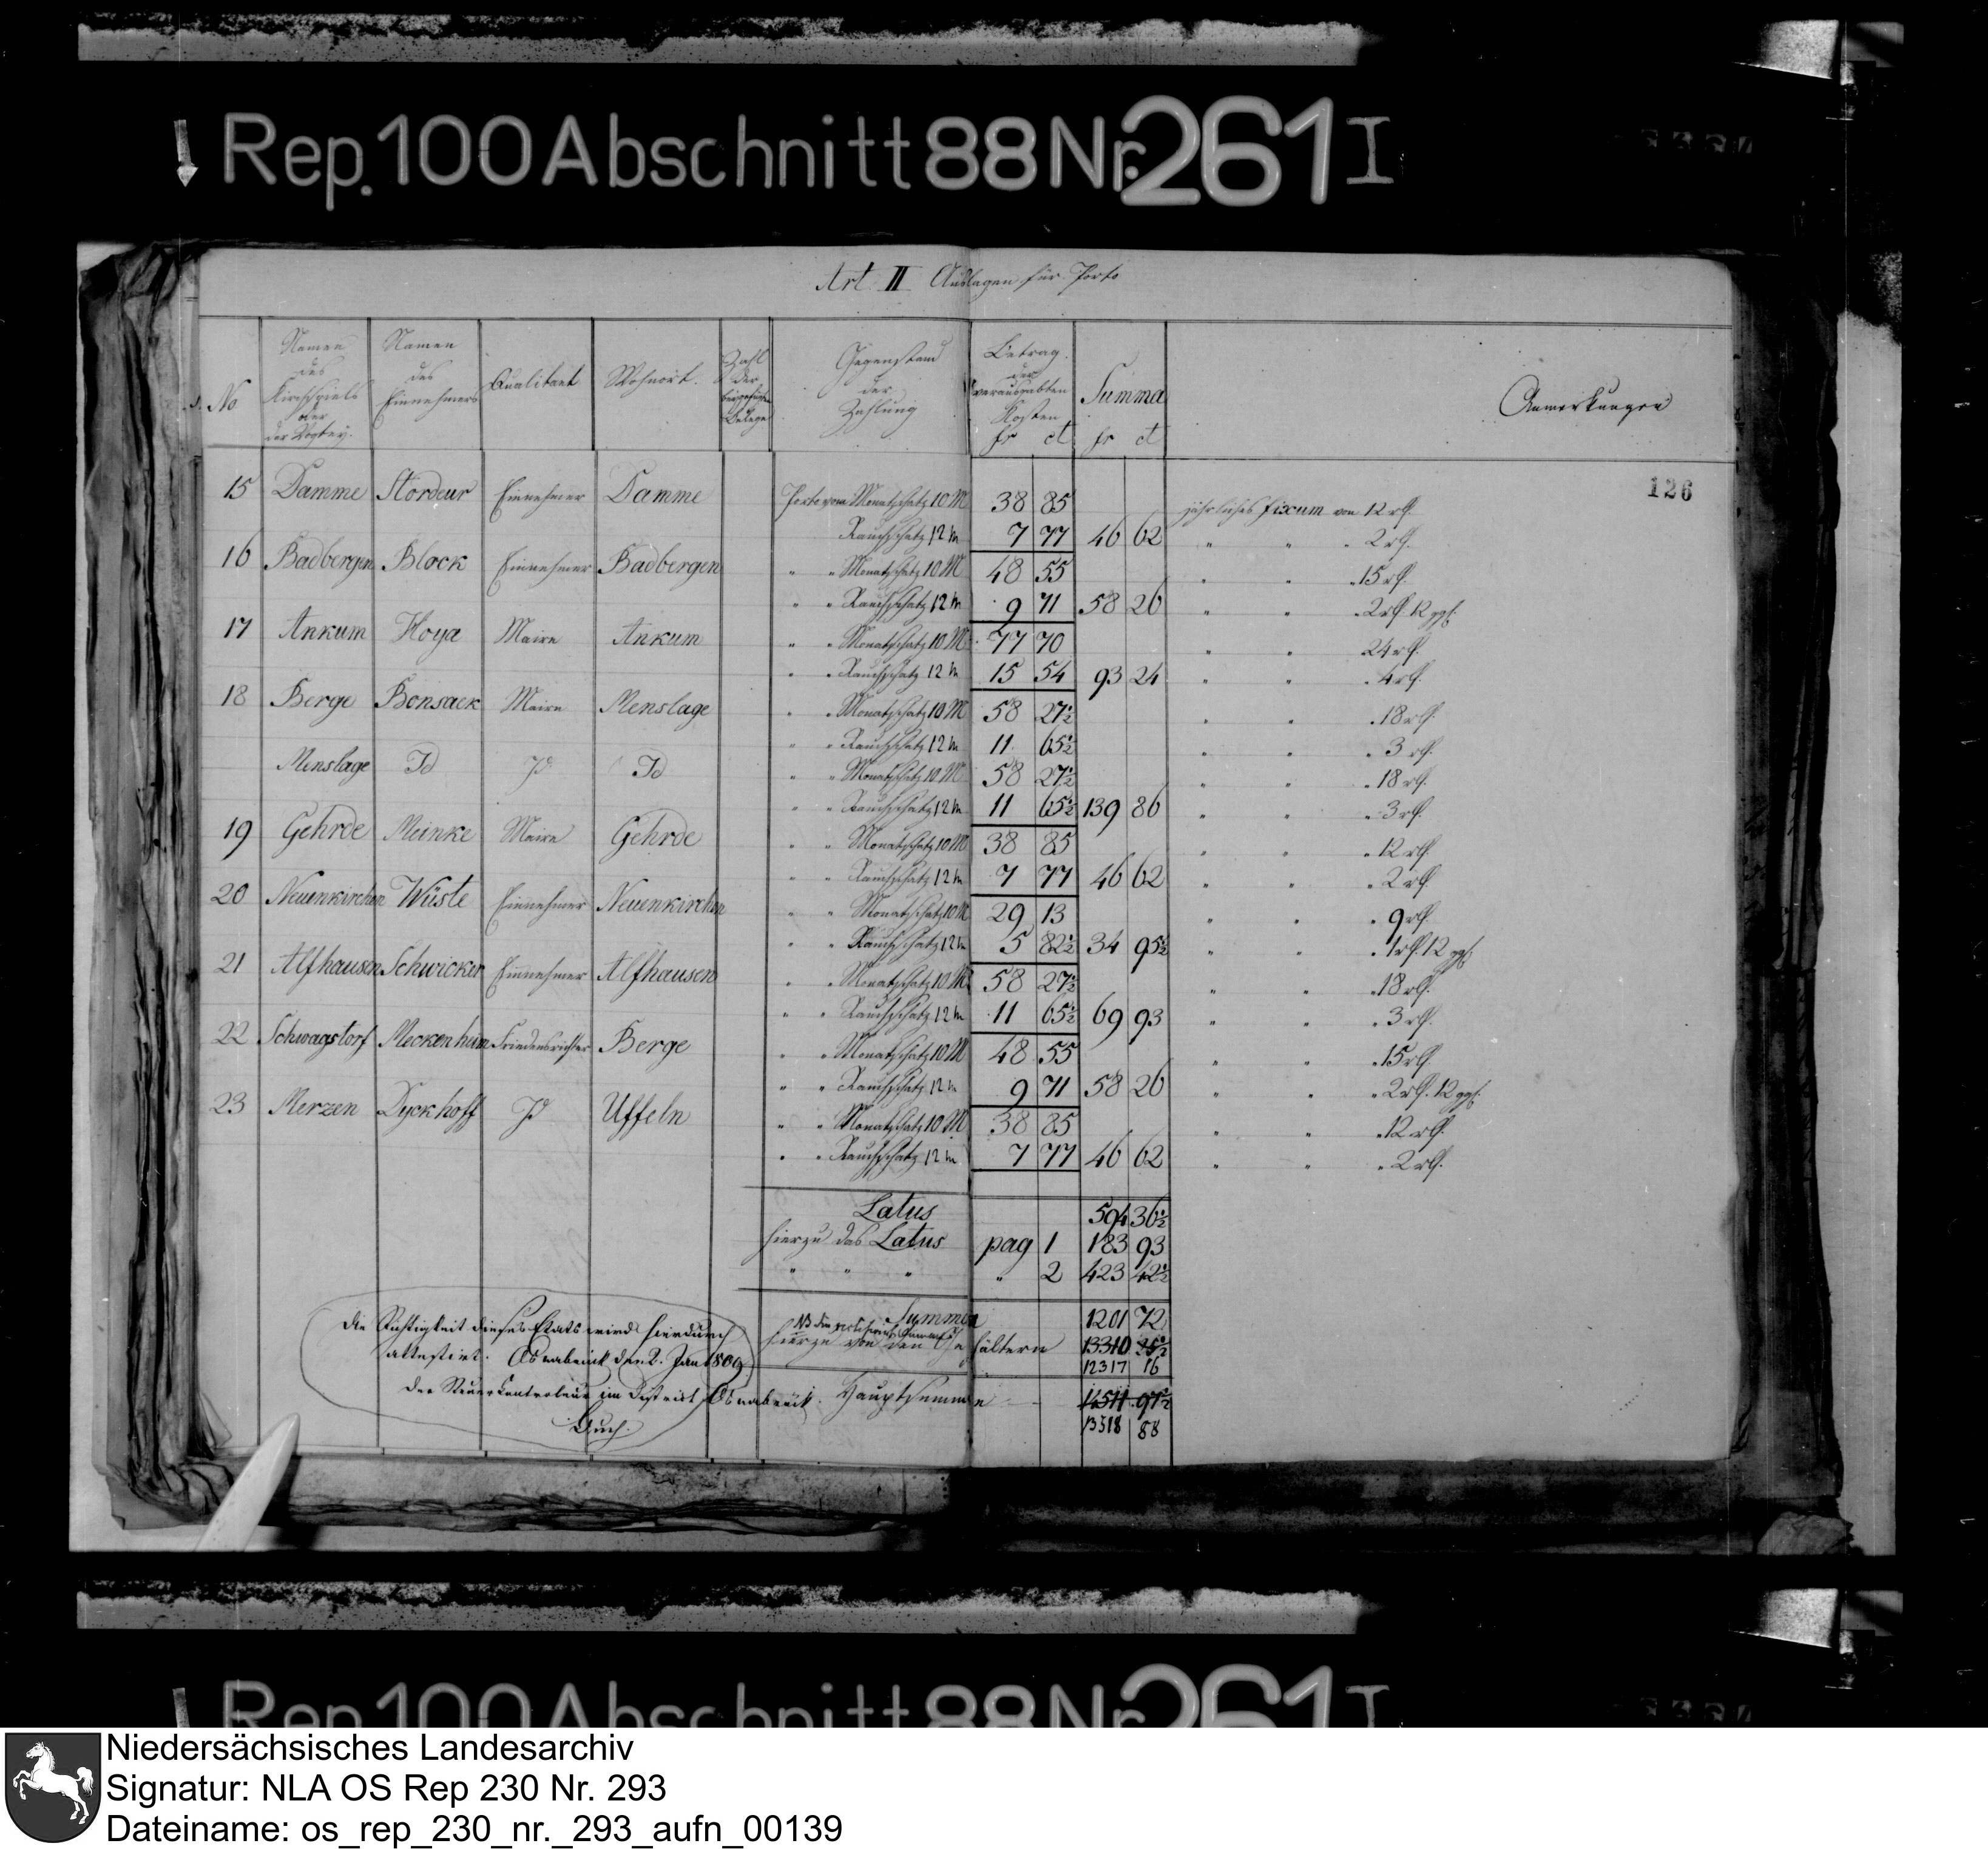 Rep. 100 Abschnitt 88 Nr. 261 I
Art II Auslagen für Porto
No Namen des Kirchspiels oder der Vogtey. Namen des Einnehmers Qualitaet Wohnort. Zahl der beigefügten Belege Gegenstand der Zahlung Betrag der verausgabten Kosten fr ct Summa fr ct Anmerkungen
126
15 Damme Stordeur Einnehmer Damme Porto vom Monatschatz 10 M 38 85 jährliches fixum von 12 rth.
Rauchschatz 12 m 7 77 46 62 " " " 2 rth.
16 Badbergen Block Einnehmer Badbergen " " Monatschatz 10 M 48 55 " " " 15 rth.
" " Rauchschatz 12 m 9 71 58 26 " " " 2 rth. 12 ggl.
17 Ankum Hoya Maire Ankum " " Monatschatz 10 M 77 70 " " 24 rth.
" " Rauchschatz 12 m 15 54 93 24 " " " 4 rth.
18 Berge Bonsack Maire Menslage " " Monatschatz 10 M 58 27½ " " " 18 rth.
" " Rauchschatz 12 m 11 65½ " " " 3 rth.
Menslage Id Id Id " " Monatschatz 10 M 58 27½ " " " 18 rth.
" " Rauchschatz 12 m 11 65½ 139 86 " " " 3 rth.
19 Gehrde Meinke Maire Gehrde " " Monatschatz 10 M 38 85 " " " 12 rth.
" " Rauchschatz 12 m 7 77 46 62 " " " 2 rth.
20 Neuenkirchen Wüste Einnehmer Neuenkirchen " " Monatschatz 10 M 29 13 " " " 9 rth.
" " Rauchschatz 12 m 5 82½ 34 95½ " " " 1 rth. 12 ggl.
21 Alfhausen Schwicker Einnehmer Alfhausen " " Monatschatz 10 M 58 27½ " " " 18 rth.
" " Rauchschatz 12 m 11 65½ 69 93 " " " 3 rth.
22 Schwagstorf Meckenheim Friedensrichter Berge " " Monatschatz 10 M 48 55 " " " 15 rth.
" " Rauchschatz 12 m 9 71 58 26 " " " 2 rth. 12 ggl.
23 Merzen Dyckhoff Id Uffeln " " Monatschatz 10 M 38 85 " " " 12 rth.
" " Rauchschatz 12 m 7 77 46 62 " " " 2 rth.
Latus 594 36½
hierzu das Latus pag 1 183 93
" " " " 2 423 42½
Summa 1201 72
hierzu von den Gehältern 13310 25½
12317 16
Hauptsumme 14511 97½
13518 88
Die Richtigkeit dieses Etats wird hierdurch
attestirt. Osnabrück den 2. Jan 1809
Der Steuer Controleur im District Osnabrück.
Buch.
Rep. 100 Abschnitt 88 Nr. 261 I
Niedersächsisches Landesarchiv
Signatur: NLA OS Rep 230 Nr. 293
Dateiname: os_rep_230_nr._293_aufn_00139